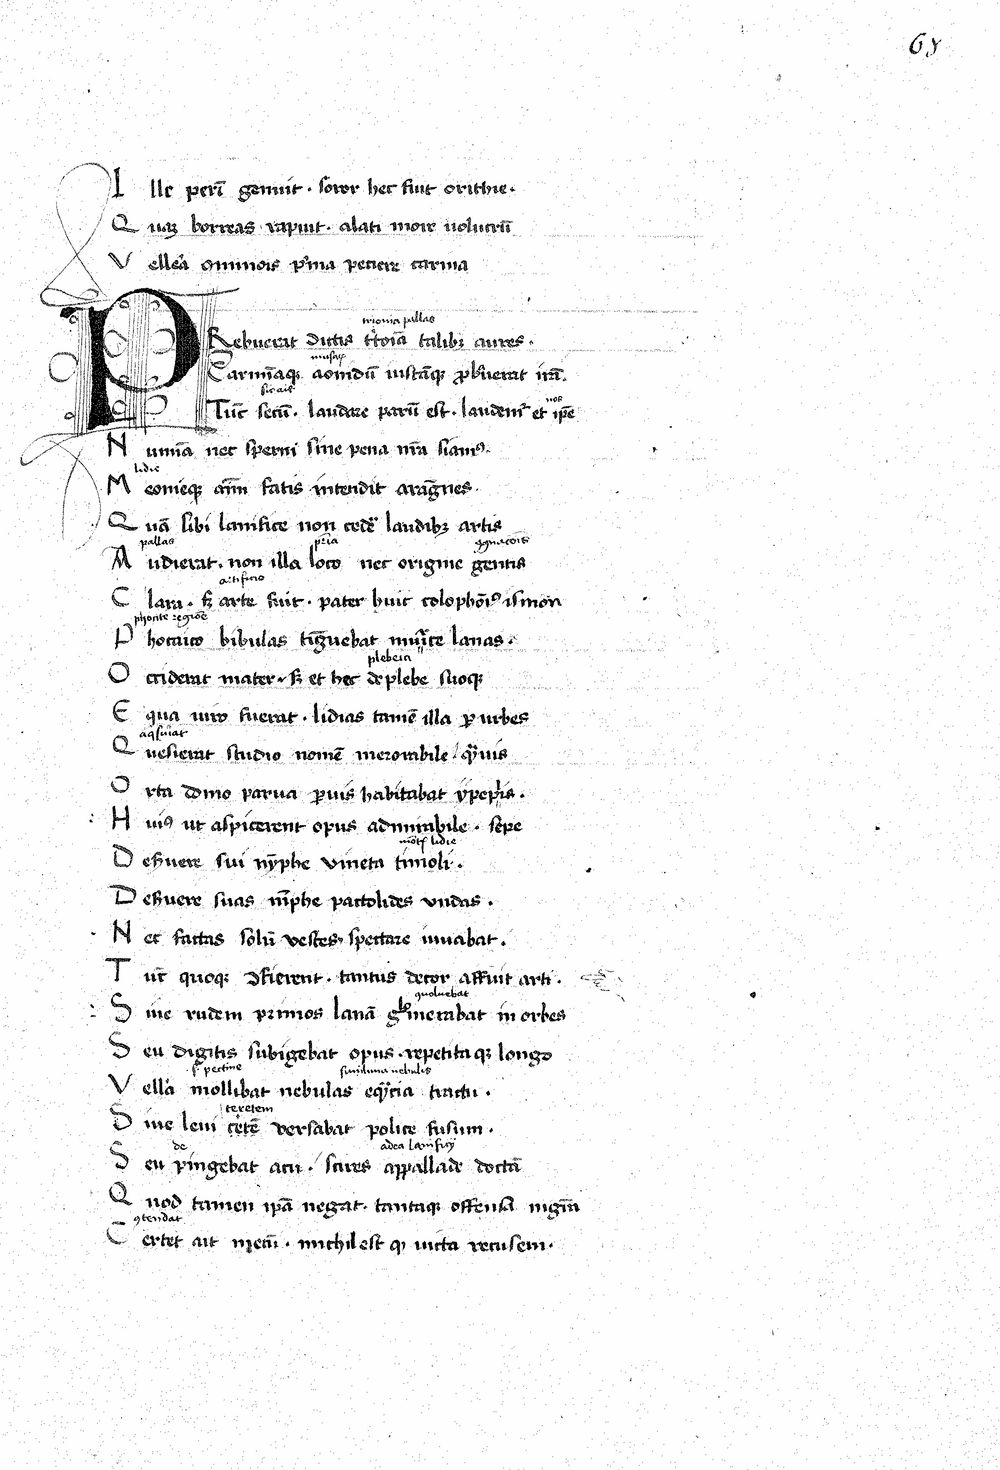 68
Ille perī genuit · soror hec fuit orithie ·
Quaꝫ borreas rapuit · alati more uolucrū
Vellera omnnois pͥma petiere carmia
tritonia pallas
PRebuerat dictis tͥtoīa talibꝫ aures ·
musaꝝ
Carmīaqꝫ aonidū iustāqꝫ ꝓbuerat irā ·
sic ait
Tūc secū · laudare parū est · laudemͬ et ip̄e
nos
Numīa nec sperni sine pena nr̄a sinamꝰ ·
lidie
Meonieqꝫ aīm fatis intendit aragnes ·
Quā sibi lanifice non cedeͬ laudibꝫ artis
pallas
Audierat · non illa loco nec origine gentis
artificio
Clara · sꝫ arte fuit · pater huic colophōiꝰ ismon
phocaice regiōe
Phocaico bibulas tīguebat murice lanas ·
plebeia
Occiderat mater · sꝫ et hec de plebe suoqꝫ
Equa uiro fuerat · lidias tamē illa ꝑ urbes
aqͥsiuat
Quesierat studio nomē memorabile · qͣuis
Orta domo parua ꝑuis habitabat ypepͥis ·
Huiꝰ ut aspicerent opus admirabile · sepe
mōtꝭ lidie
Deseruere sui nȳphe vineta timoli ·
Deseruere suas nīphe pactolides vndas ·
Nec factas solū vestes spectare iuuabat ·
Tūc quoqꝫ cū fierent · tantus decor affuit arti ·
quoluebat
Siue rudem primos lanā glomerabat in orbes
Seu digitis subigebat opus · repetitaqꝫ longo
Vellera mollibat nebulas eqͣntia tractu ·
teretem
Siue leui terētē versabat police fusum ·
Seu pingebat acu · scires a pallade doctā
Quod tamen ipā negat · tantaqꝫ offensa magistra
ꝯtendat
Certet ait mecū · michil est qꝫ uicta recusem ·